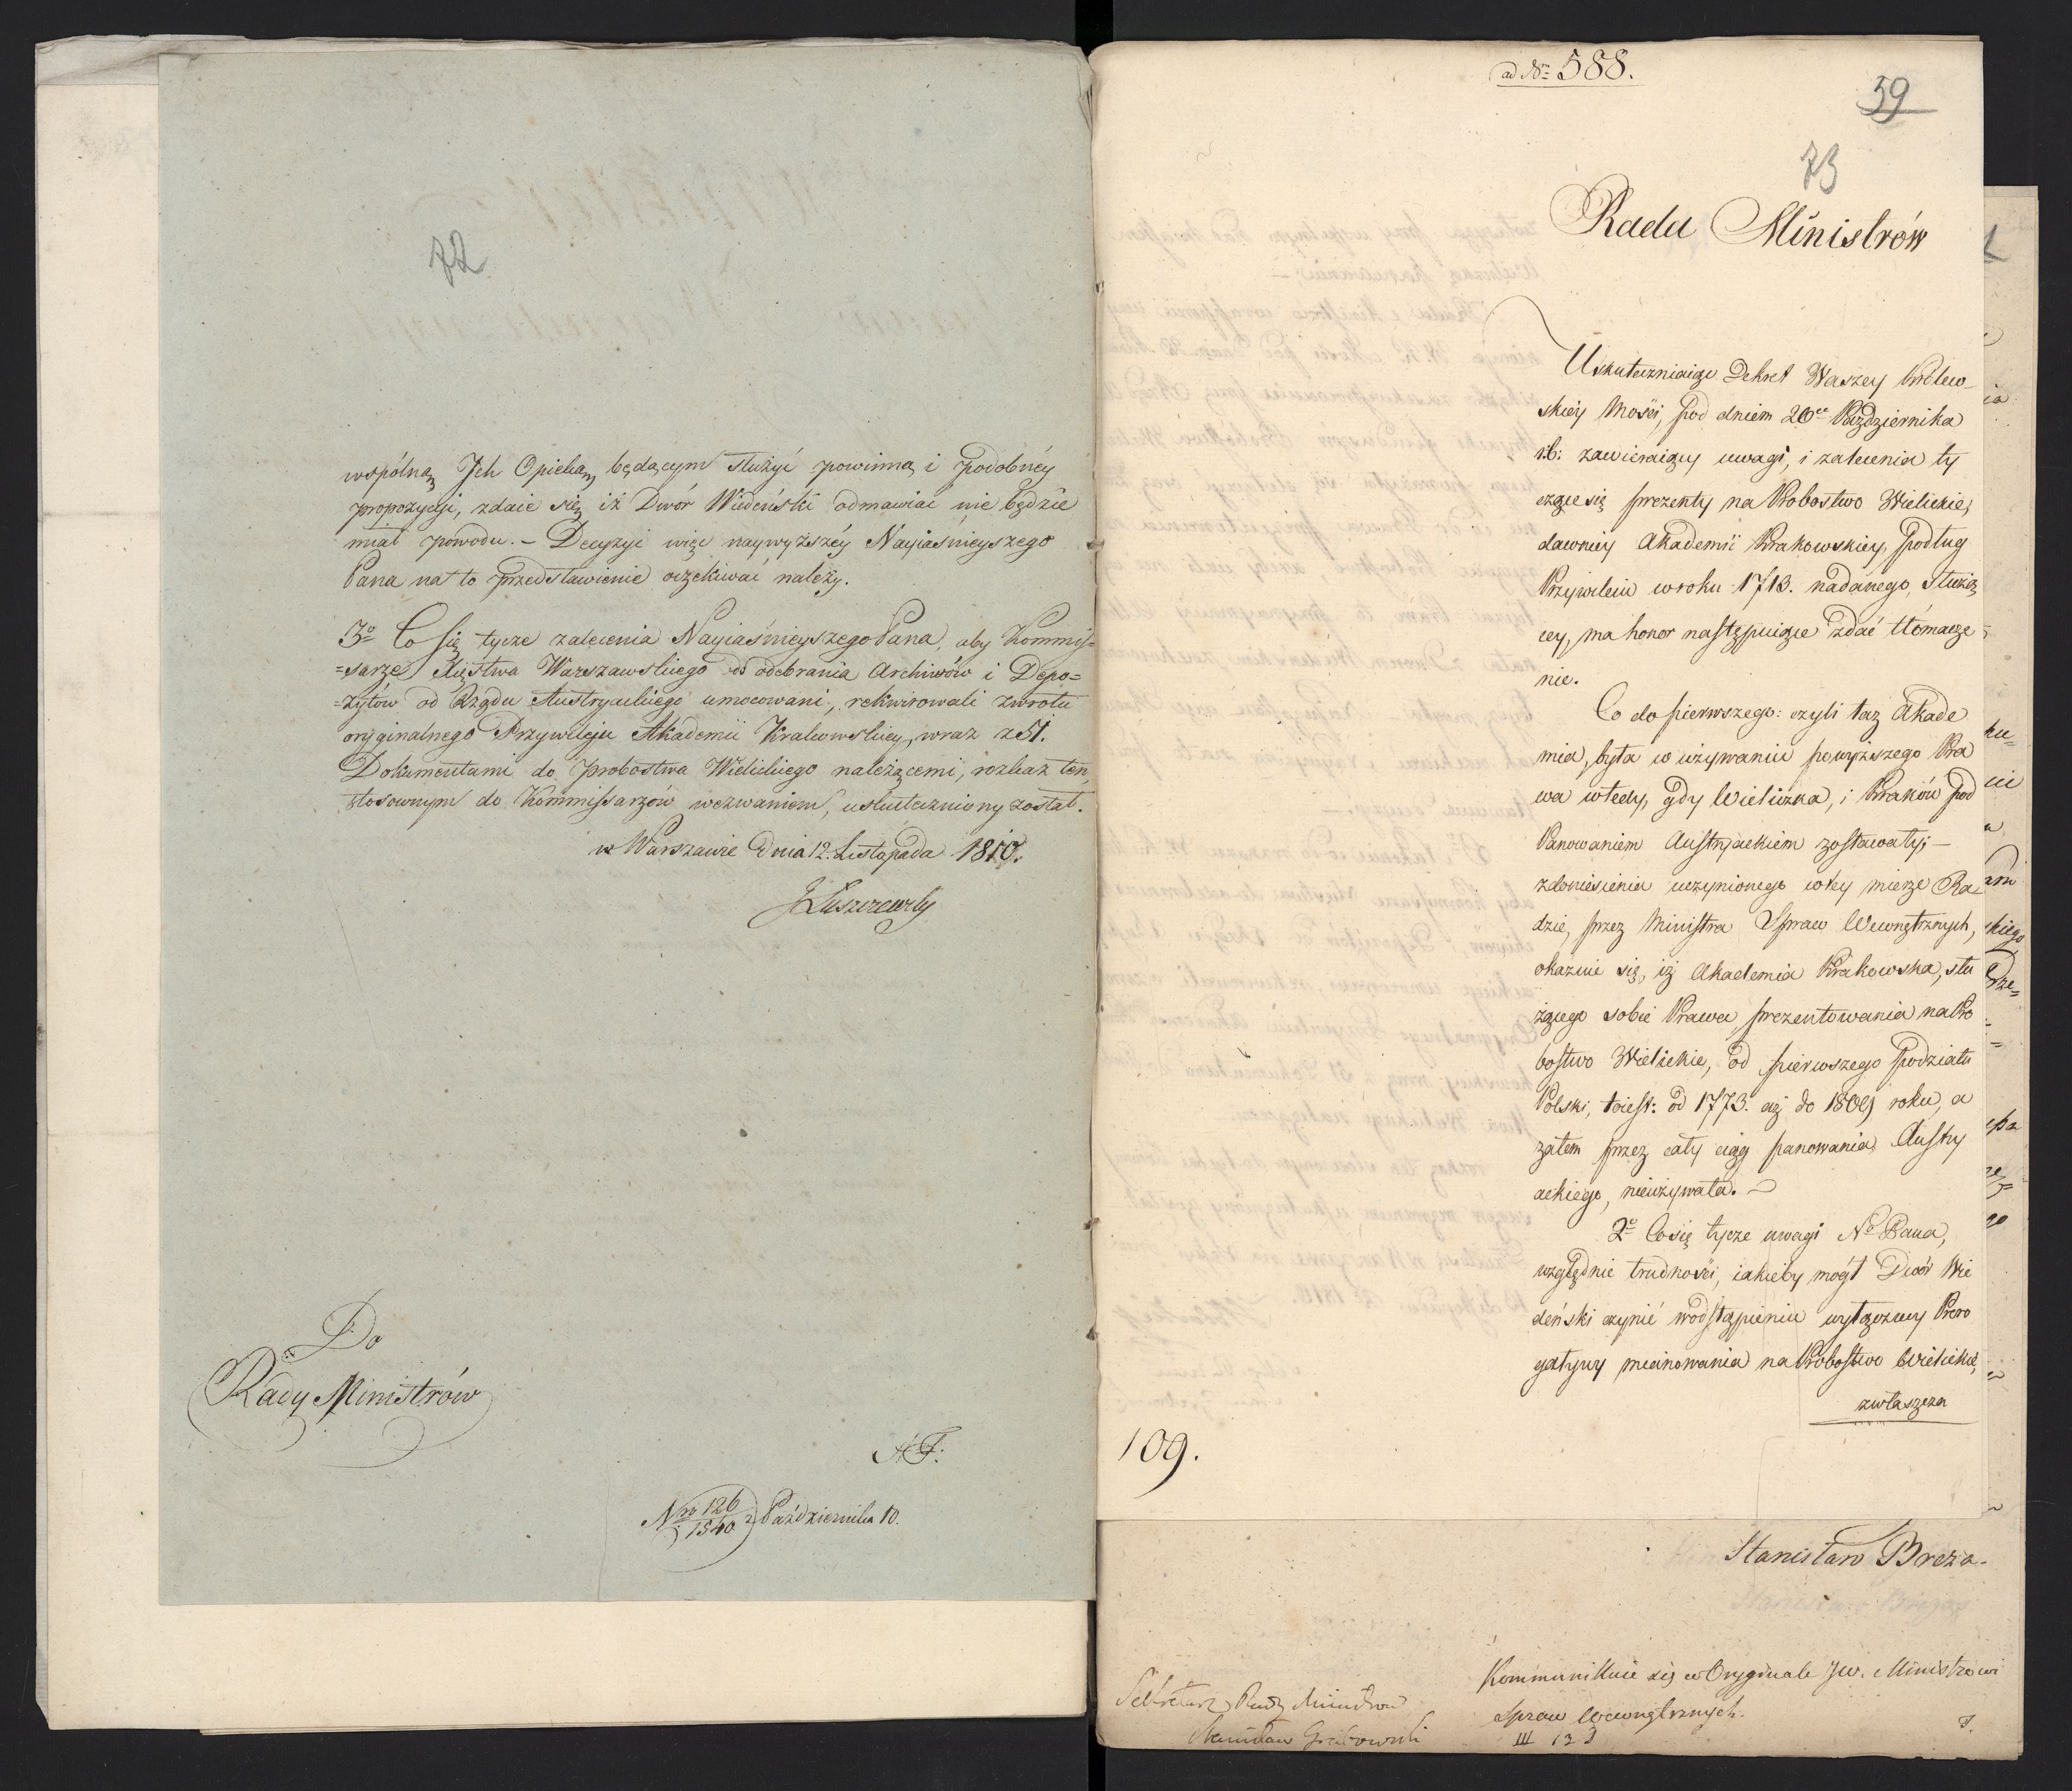 72
wspólną Ich Opieką, będącym służyć powinna, i podobnéy
propozycji, zdaie się, iż Dwór Wiedeński odmawiać nie będzie
miał powodu. – Decyzyi więc naywyższéy Nayiaśnieyszego
Pana na to przedstawienie oczekiwać należy.
3o Co się tycze zalecenia Nayiaśnieyszego Pana, aby Kommis=
=sarze Xięstwa Warszawskiego do odebrania Archiwów i Depo=
=zytów od Rządu Austryackiego umocowani, rekwirowali zwrotu
oryginalnego Przywileju Akademii Krakowskiey, wraz z 51.
Dokumentami do probostwa Wielickiego należącemi, rozkaz ten,
stosownym do Kommissarzów wezwaniem, uskuteczniony został.
w Warszawie Dnia 12. Listopada 1810.
J Łuszczewski
Do
Rady Ministrów
Nro 126
1540 z Października 10.
ad Nrm 588.
59
73
Rada Ministrów
Uskuteczniaiąc Dekret Waszey Królew-
skiéy Mości, pod dniem 26ca Października
r.b: zawieraiący uwagi, i zalecenia ty
czące się prezenty na Probostwo Wielickie,
dawniey Akademii Krakowskiey, podług
Przywileiu w roku 1713. nadanego, służą
cey, ma honor następuiące zdać tłómacze=
nie.
Co do pierwszego: czyli taż Akade
mia, była w używaniu powyższego Pra
wa wtedy, gdy Wieliczka, i Kraków pod
Panowaniem Austryackiem zostawały; —
z doniesienia uczynionego w tey mierze Ra
dzie, przez Ministra Spraw Wewnętrznych,
okazuie się, iż Akademia Krakowska, słu
żącego sobie Prawa, prezentowania na Pro
bostwo Wielickie, od pierwszego podziału
Polski, toiest: od 1773. aż do 1809 roku, a
zatem przez cały ciąg panowania Austry
ackiego, nieużywała. —
2o Co się tycze uwagi No Pana,
względnie trudności, iakieby mógł Dwór Wie
deński czynić w odstąpieniu wyłączney Prero
gatywy mianowania na Probostwo Wielickie,
zwłaszcza
109.
Stanisław Breza.
Kommunikuie się w Oryginale JW. Ministrowi
Spraw Wewnętrznych.
III 12
Sekretarz Rady Ministrów
Stanisław Grabowski